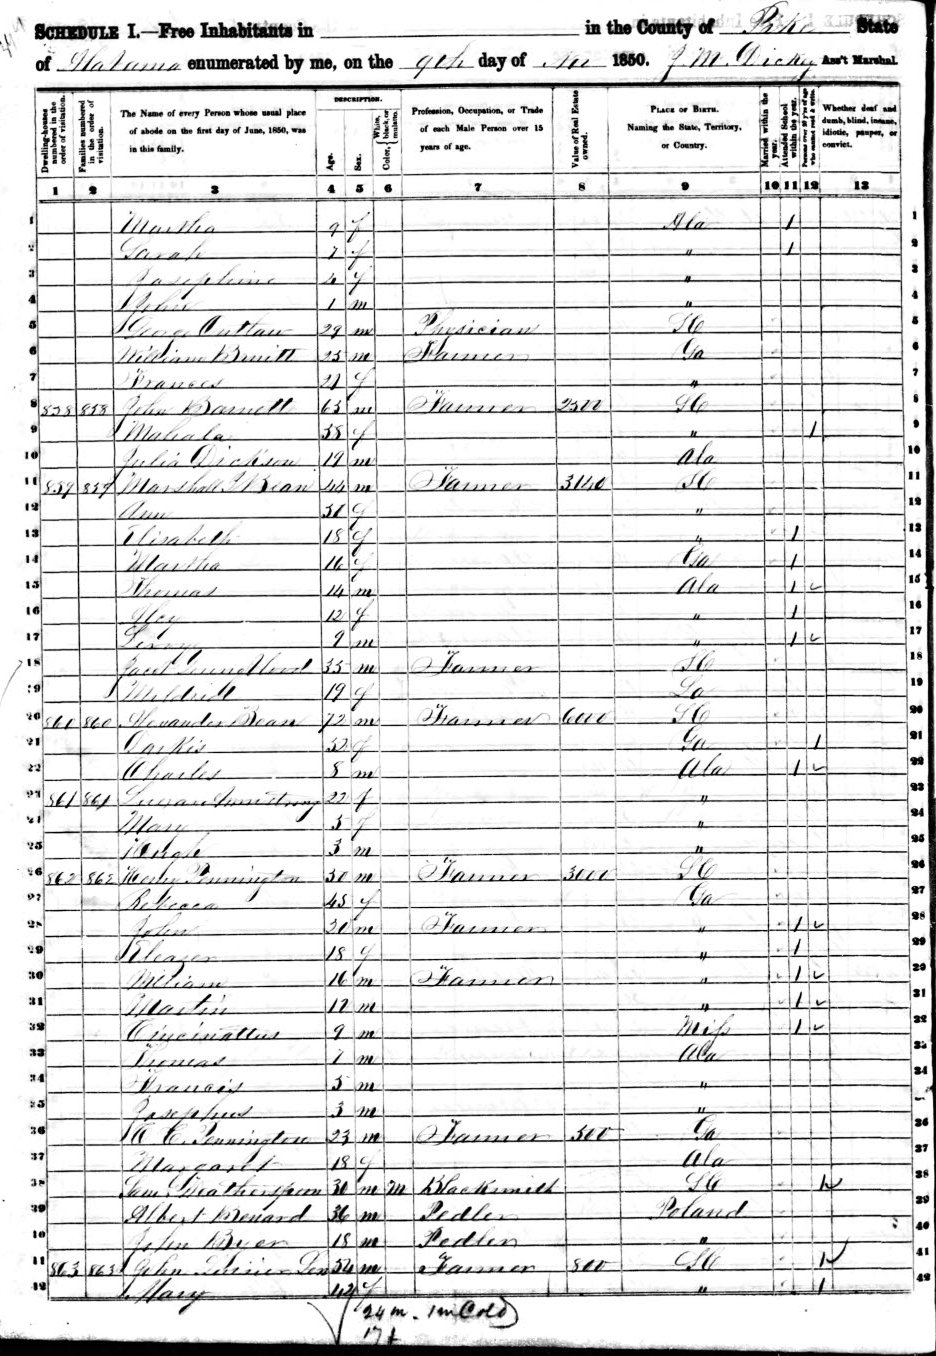 SCHEDULE I.—Free Inhabitants in in the County of Pike State
of Alabama enumerated by me, on the 9th day of 1850. J M Dicky Ass't Marshal.
Dwelling-houses numbered in the order of visitation.
Families numbered in the order of visitation.
The Name of every Person whose usual place of abode on the first day of June, 1850, was in this family.
DESCRIPTION.
Age.
Sex.
Color, White, black, or mulatto.
Profession, Occupation, or Trade of each Male Person over 15 years of age.
Value of Real Estate owned.
PLACE OF BIRTH. Naming the State, Territory, or Country.
Married within the year.
Attended School within the year.
Persons over 20 y'rs of age who cannot read & write.
Whether deaf and dumb, blind, insane, idiotic, pauper, or convict.
1 2 3 4 5 6 7 8 9 10 11 12 13
1 Martha 9 f Ala 1 1
2 Sarah 7 f " 1 2
3 Josephine 4 f " 3
4 John 1 m " 4
5 George Outlaw 29 m Physician SC 5
6 William 25 m Farmer Ga 6
7 Frances 21 f " 7
8 858 858 John Barnett 65 m Farmer 2500 SC 8
9 Mahala 58 f " 1 9
10 Julia Dickson 19 m Ala 10
11 859 859 Marshall Bean 44 m Farmer 3140 SC 11
12 Ann 30 f " 12
13 Elisabeth 18 f " 1 13
14 Martha 16 f Ga 1 14
15 Thomas 14 m Ala 1 15
16 12 f " 1 16
17 Leroy 9 m " 1 17
18 35 m Farmer SC 18
19 Mildridt 19 f 19
20 860 860 Alexander Bean 72 m Farmer 6000 SC 20
21 Darkis 52 f Ga 1 21
22 Charles 8 m Ala 1 22
23 861 861 Armstrong 22 f " 23
24 Mary 5 f " 24
25 Hugh 3 m " 25
26 862 862 Pennington 50 m Farmer 3000 SC 26
27 Rebecca 45 f Ga 27
28 John 20 m Farmer " 1 28
29 18 f " 1 29
30 William 16 m Farmer " 1 30
31 Martin 12 m " 1 31
32 Cincinattus 9 m Miss 1 32
33 Thomas 7 m Ala 33
34 Francis 5 m " 34
35 Josephus 3 m "
36 Pennington 23 m Farmer 500 Ga 36
37 Margaret 18 f Ala 37
38 Sam Weatherspoon 30 m m Blacksmith SC 1 38
39 Albert Benard 36 m Pedler Poland 39
40 John Byer 18 m Pedler " 40
41 863 863 John 52 m Farmer 800 SC 1 41
42 Mary 42 f " 1 42
24 m. 1m Cold
17 f